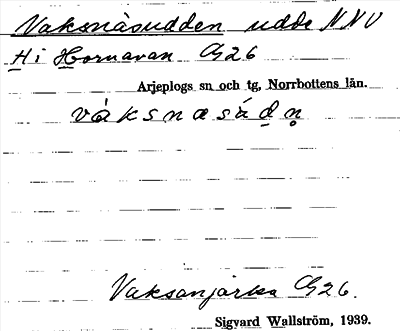 Vaksnäsudden udde NNV
H i Hornavan G26
Arjeplogs sn och tg, Norrbottens län.
våksnæsádn
Vaksanjarka G26.
Sigvard Wallström, 1939.